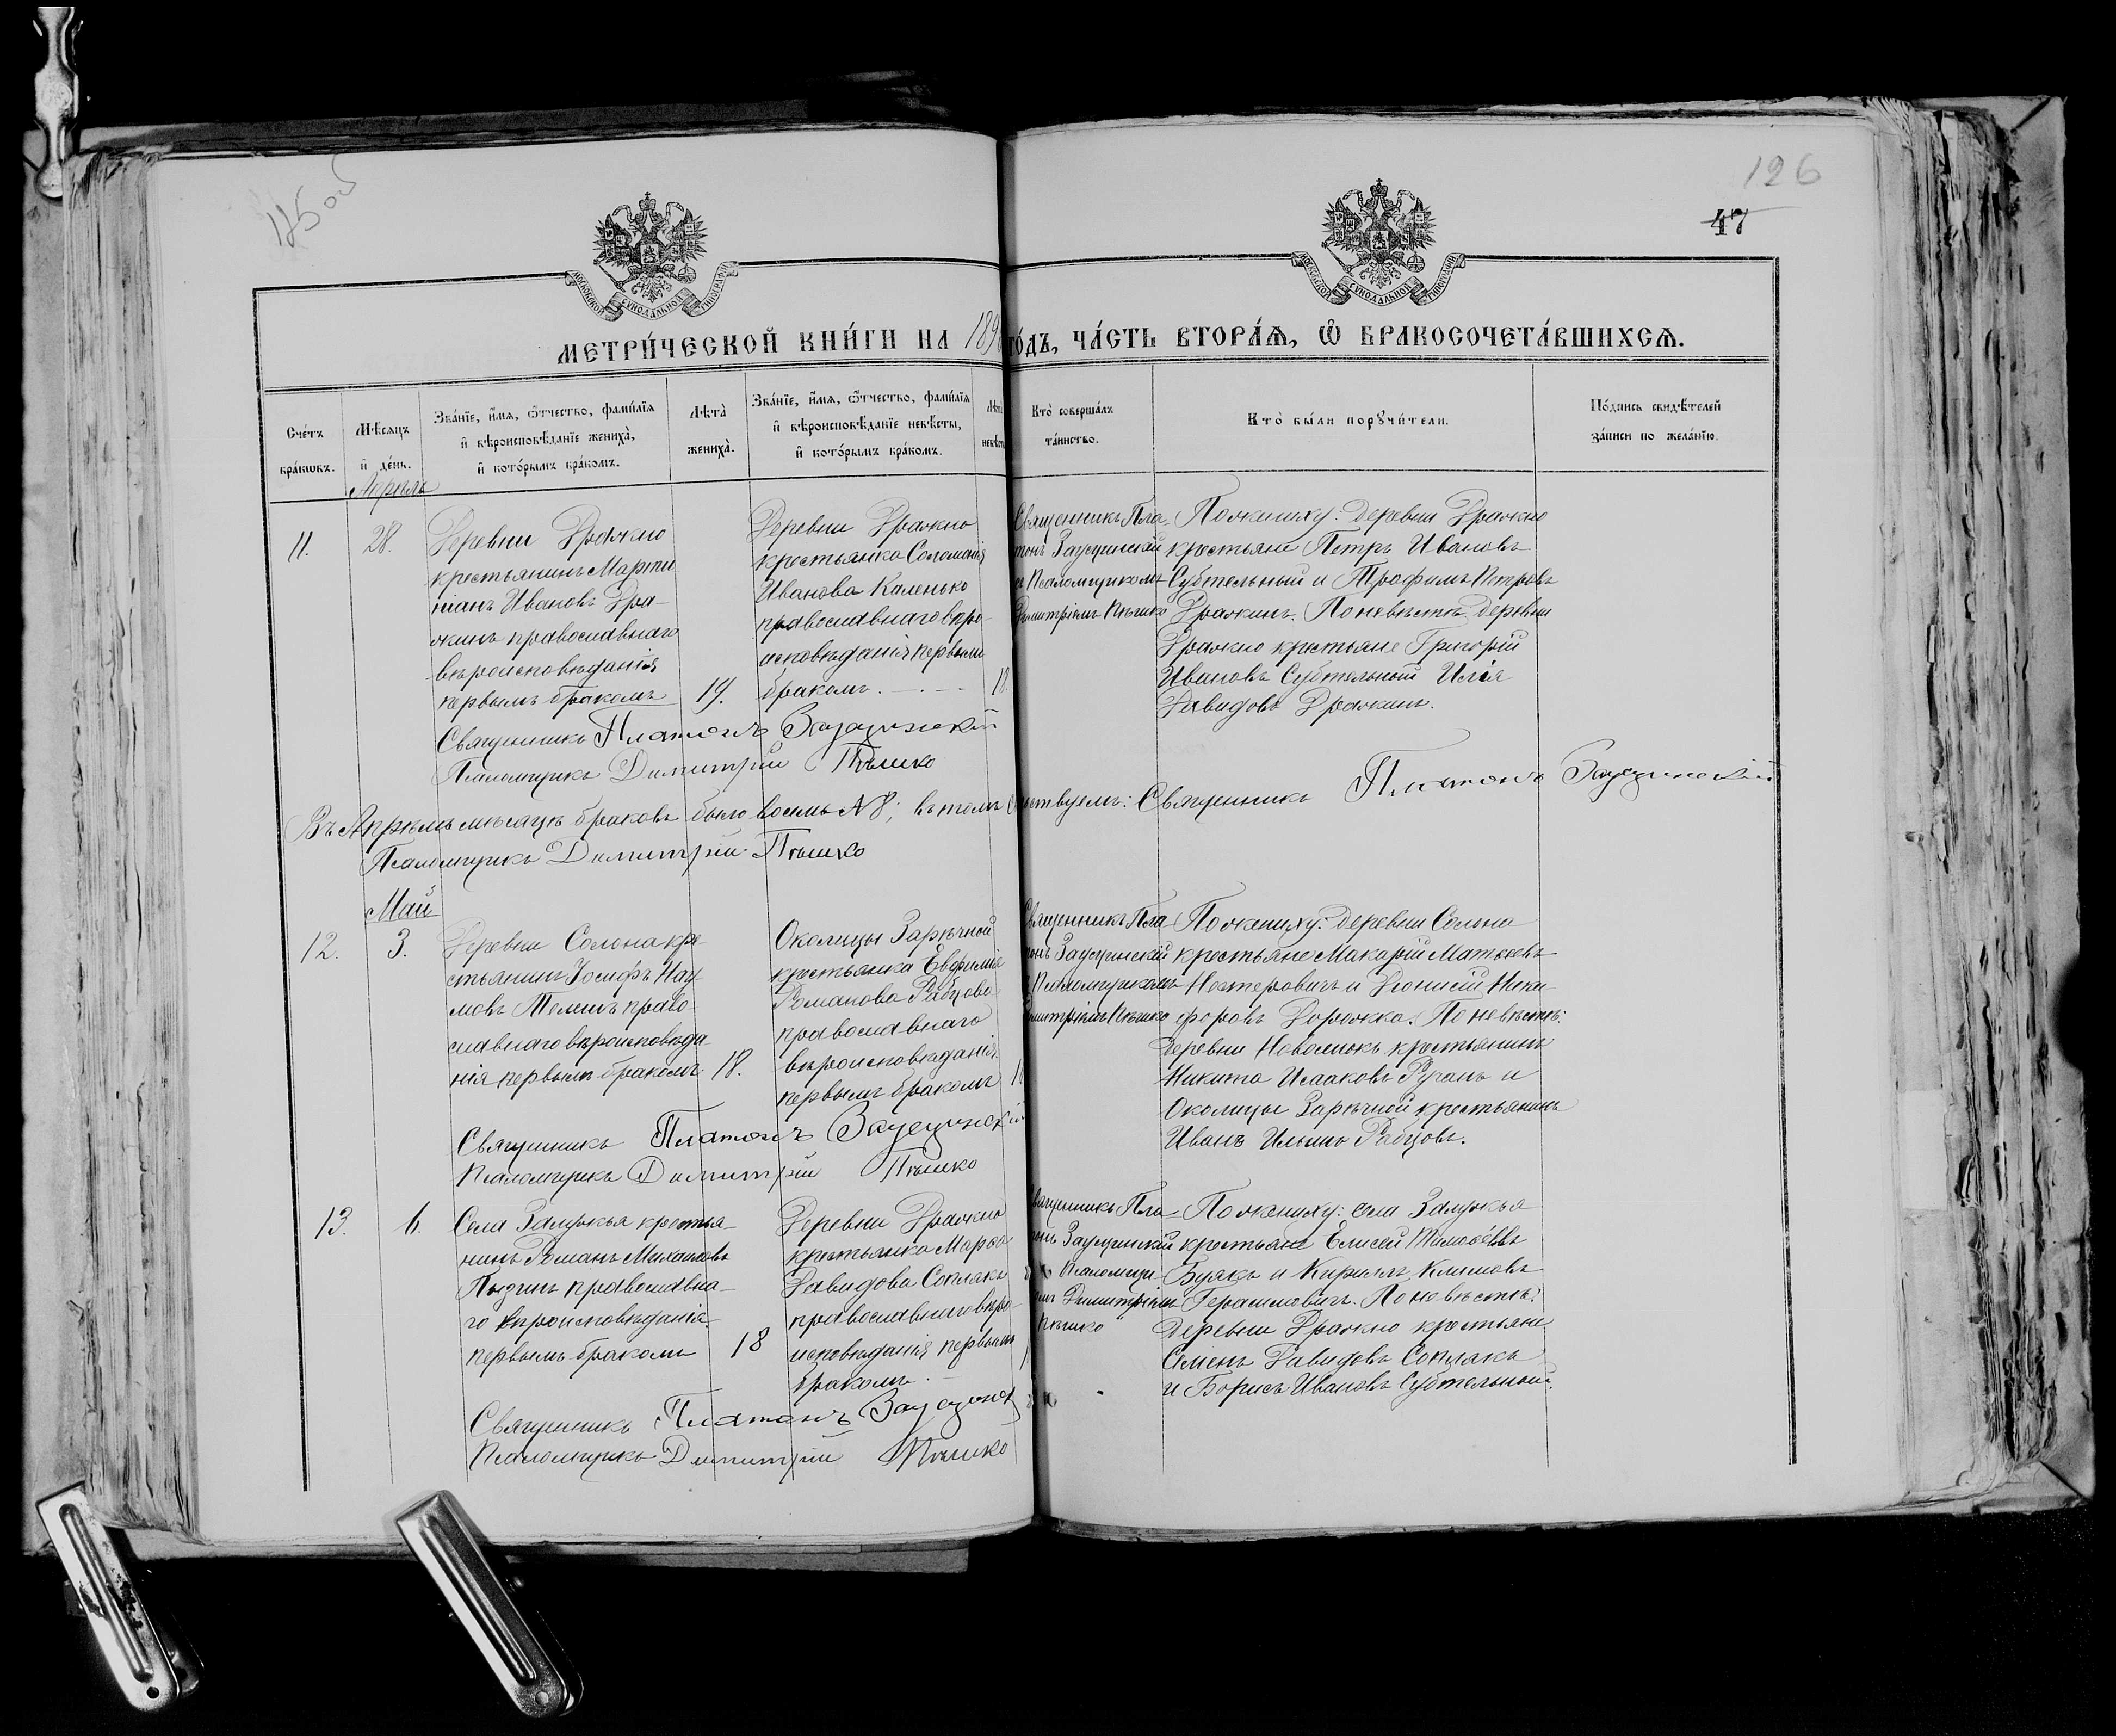 126
47
МОСКОВСКОЙ СУНОДАЛЬНОЙ ТИПОГРАФІИ
МОСКОВСКОЙ СУНОДАЛЬНОЙ ТИПОГРАФІИ
МЕТРИ́ЧЕСКОЙ КНИ́ГИ НА 189 ГО́ДЪ, ЧА́СТЬ ВТОРА́Ѧ, Ѽ БРАКОСОЧЕТА́ВШИХСѦ.
Сче́тъ
бра́кѡвъ.
Мѣсѧцъ
и҆ де́нь.
Зва́нїе, и҆́мѧ, ѻ҆́тчество, фами́лїѧ
и҆ вѣроисповѣ́данїе жениха̀,
и҆ кото́рымъ бра́комъ.
Лѣта̀
жениха̀.
Зва́нїе, и҆́мѧ, ѻ҆́тчество, фами́лїѧ
и҆ вѣроисповѣ́данїе невѣ́сты,
и҆ кото́рымъ бра́комъ.
Лѣта̀
невѣ́сты
Кто̀ соверша́лъ
та́инство.
Кто̀ бы́ли порꙋчи́тели.
По́дпись свидѣ́телей
за́писи по жела́нїю.
Апрѣль
11.
28.
Деревни Дражно
крестьянинъ Марти
ніанъ Ивановъ Дра-
жинъ православнаго
вѣроисповѣданія
первымъ бракомъ
19.
Деревни Дражно
крестьянка Соломанія
Иванова Каленько
православнаго вѣро-
исповѣданія первымъ
бракомъ.
18.
Священникъ Пла-
тонъ Заусцинскій
съ Псаломщикомъ
Димитріемъ Пѣшко
По жениху: деревни Дражно
крестьяне Петръ Ивановъ
Субтельный и Трофимъ Петровъ
Дражинъ. По невѣстѣ: деревни
Дражно крестьяне Григорій
Ивановъ Субтельный Илія
Давидовъ Дражинъ.
Священникъ Платонъ Заусцинскій
Псаломщикъ Димитрій Пѣшко
Въ Апрѣлѣ мѣсяцѣ браковъ было восемь № 8; въ томъ свидѣтельствуемъ: Священникъ Платонъ Заусцинскій
Псаломщикъ Димитрій Пѣшко
Май
12.
3.
Деревни Солона кре-
стьянинъ Іосифъ Нау-
мовъ право-
славнаго вѣроисповѣда-
нія первымъ бракомъ
18.
Околицы Зарѣчной
крестьянка Евфимія
Романова Рабцова
православнаго
вѣроисповѣданія
первымъ бракомъ
Священникъ Пла-
тонъ Заусцинскій
съ Псаломщикомъ
Димитріемъ Пѣшко
По жениху: деревни Солона
крестьяне Макарій Матѳеевъ
Нестеровичъ и Діонисій Ники-
форовъ Дорожка. По невѣстѣ:
деревни крестьянинъ
Никита Исааковъ и
Околицы Зарѣчной крестьянинъ
Иванъ Ильинъ Рабцовъ.
Священникъ Платонъ Заусцинскій
Псаломщикъ Димитрій Пѣшко
13.
6.
Села Залужья крестья-
нинъ Романъ Михаиловъ
православна-
го вѣроисповѣданія
первымъ бракомъ
18
Деревни Дражно
крестьянка Марѳа
Давидова Соплякъ
православнаго вѣро-
исповѣданія первымъ
бракомъ.
Священникъ Пла-
тонъ Заусцинскій
съ Псаломщи-
комъ Димитріемъ
Пѣшко
По жениху: села Залужья
крестьяне Елисей Тимоѳеевъ
Буякъ и Кириллъ Климовъ
Герасимовичъ. По невѣстѣ:
деревни Дражно крестьяне
Семенъ Давидовъ Соплякъ
и Борисъ Ивановъ Субтельный.
Священникъ Платонъ Заусцинскій
Псаломщикъ Димитрій Пѣшко